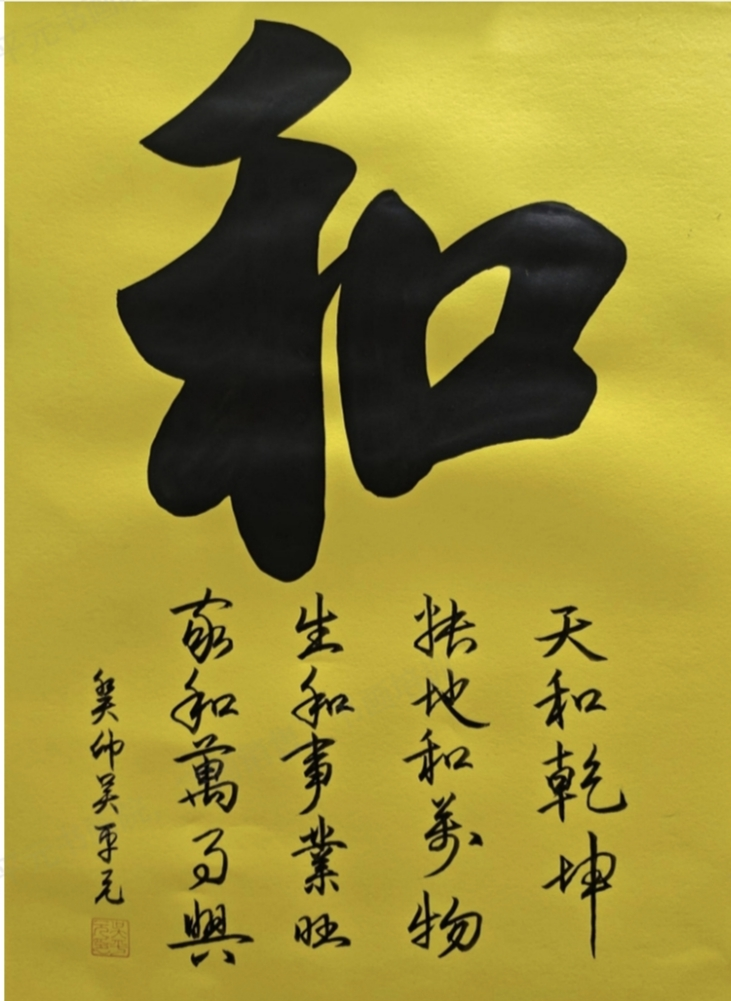 和
天和乾坤
地和萬物
生和事業旺
家和萬事興
癸卯吴平元